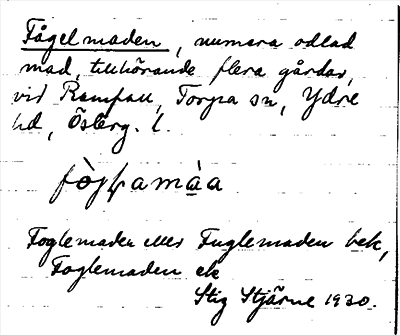 Fågelmaden, numera odlad
mad, tillhörande flera gårdar,
vid Ramfall, Torpa sn, Ydre
hd, Österg. l.
Foglemaden eller Fuglemaden bek,
Foglemaden ek
Stig Stjärne 1930.